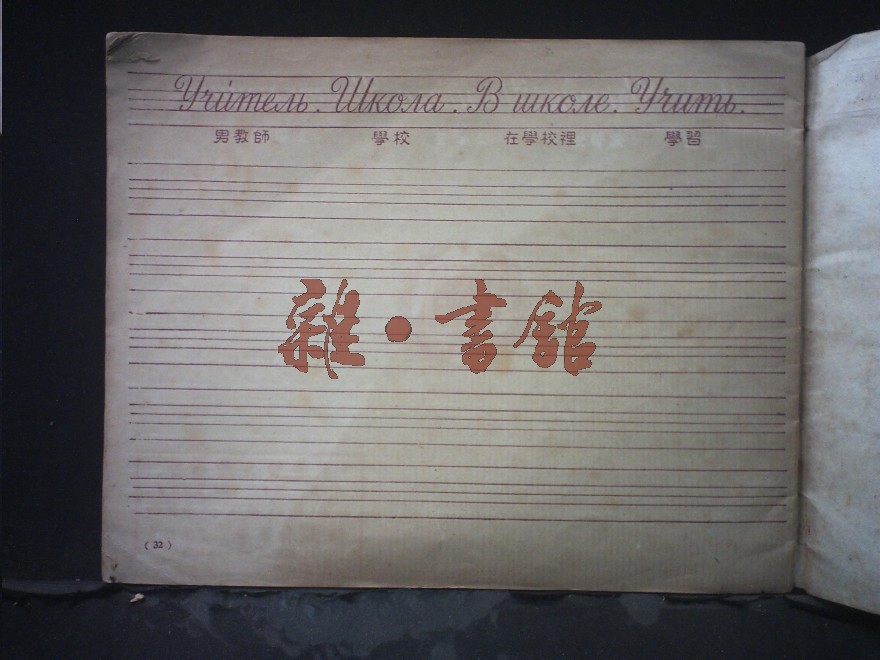 Учи́тель. Школа. В школе. Учить.
男教師 學校 在學校裡 學習
雜·書館
(32)